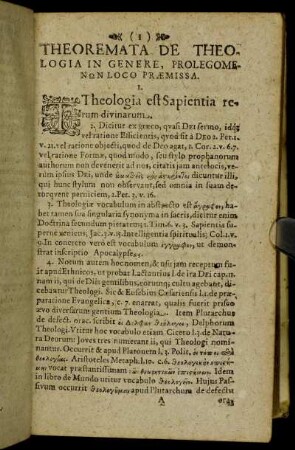 ( 1 )
THEOREMATA DE THEO-
LOGIA IN GENERE, PROLEGOME-
NΩN LOCO PRÆMISSA.
I.
Theologia est Sapientia re-
rum divinarum.
2. Dicitur ex quasi DEI sermo,
vel ratione Efficientis, quod sit à DEO 2. Pet. 1.
v. 21. vel ratione objecti, quod de Deo agat, 1. Cor. 2. v. 6. 7.
vel ratione Formæ, quod modo, seu stylo prophanorum
authorum non devenerit ad nos, citatis jam antelocis, ve-
rùm ipsus DEI, unde dicuntur illi,
qui hunc stylum non observant, sed omnia in suam de-
torquent perniciem, 2. Pet. 3. v. 16.
3. Theologiæ vocabulum in abstracto est ha-
bet tamen sua singularia synonyma in sacris, dicitur enim
Doctrina secundum pietatem 1. Tim. 6. v. 3. Sapientia su-
pernè veniens, Jac. 3. v. Intelligentia spiritualis; Col. 1. v.
9. In concreto verò est vocabulum ut demon-
strat inscriptio Apocalypseως.
4. Notum autem hoc nomen, & usu jam receptum fu-
it apud Ethnicos, ut probat Lactantius l. de ira DEI cap.
nam, qui de Diis gentilibus, eorumq; cultu agebant, di-
cebantur Theologi. Sic & Eusebius Cæsariensis l. de præ-
paratione Evangelica, c. 7. enarrat, qualis fuerit prisco
ævo diversarum gentium Theologia. Item Plutarchus
de defect. orac. scribit Delphorum
Theologi. Vtitur hoc vocabulo etiam Cicero l. 3. de Natu-
ra Deorum: Joves tres numerant ii, qui Theologi nomi-
nantur. Occurrit & apud Platonem l. 2. Polit.
Aristoteles Metaph. lib. c.
vocat præstantissimam Idem
in libro de Mundo utitur vocabulo Hujus Pas-
sivum occurrit apud Plutarchum de defectu
A